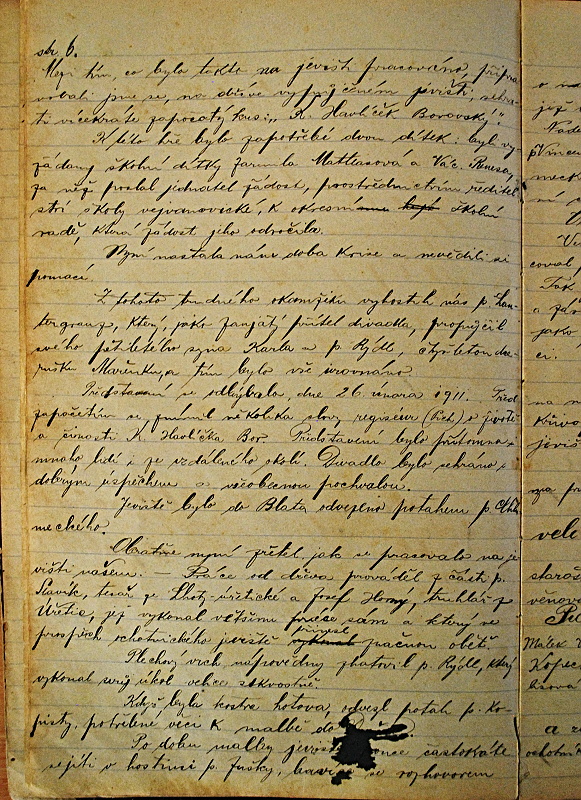 str. 6.
Mezi tím, co bylo takto na jevišti pracováno, připra
vovali jsme se, na dříve vypůjčeném jevišti, sehrá-
ti vícekráte započatý kus: „K. Havlíček Borovský“
K této hře bylo zapotřebí dvou dítek: byly vy-
žádány školní dítky Jarmila Mattasova a Vác.
za něž poslal jednatel žádost, prostřednictvím ředitel
ství školy vejvanovické, k okresní školní
radě, která žádost jeho odročila.
Nyní nastala nám doba krise a nevěděli si
pomoci.
Z tohoto trudného okamžiku vyhostil nás p. Lan-
tergraus, který, jako zanjatý přítel divadla, propůjčil
svého pětiletého syna Karla a p. Rýdl, čtyrletou dce-
rušku Mařenku, a tím bylo vše urovnáno.
Představení se odbývalo, dne 26. února 1911. Před
započetím se zmínil několika slovy regiséur (Pich.) o životě
a činosti K. Havlíčka Bor. Představení bylo přítomno
mnoho lidí i ze vzdáleného okolí. Divadlo bylo sehráno s
dobrým úspěchem a všeobecnou pochvalou.
Jeviště bylo do Blata odvezeno potahem p.
meckého.
Obraťme nyní zřetel jak se pracovalo na je
višti našem. — Práce od dřeva prováděl z části p.
Slavík, tesař ze Lhoty-úřetické a Josef Horný, truhlář z
Úřetic, jej vykonal většinu práce sám a který ve
prospěch ochotnického jeviště přinesl vykonal pracnou oběť.
Plechový vrch nápovědny zhotovil p. Rýdl, který
vykonal svůj úkol velice skvostně.
Když byla kostra hotova, odvezl potah p. Ko-
pisty, potřebné věci k malbě do
Po dobu malby jeviště častokráte
sejíti v hostinci p. Fušky, baviti se rozhovorem
o
její
Nad
Vincen
meck
ní
coval
Tak
a
jako
ci.
na
křivo
jeviš
velí
staros
věnova
Málek
Kopec
lisova
a
ochotní